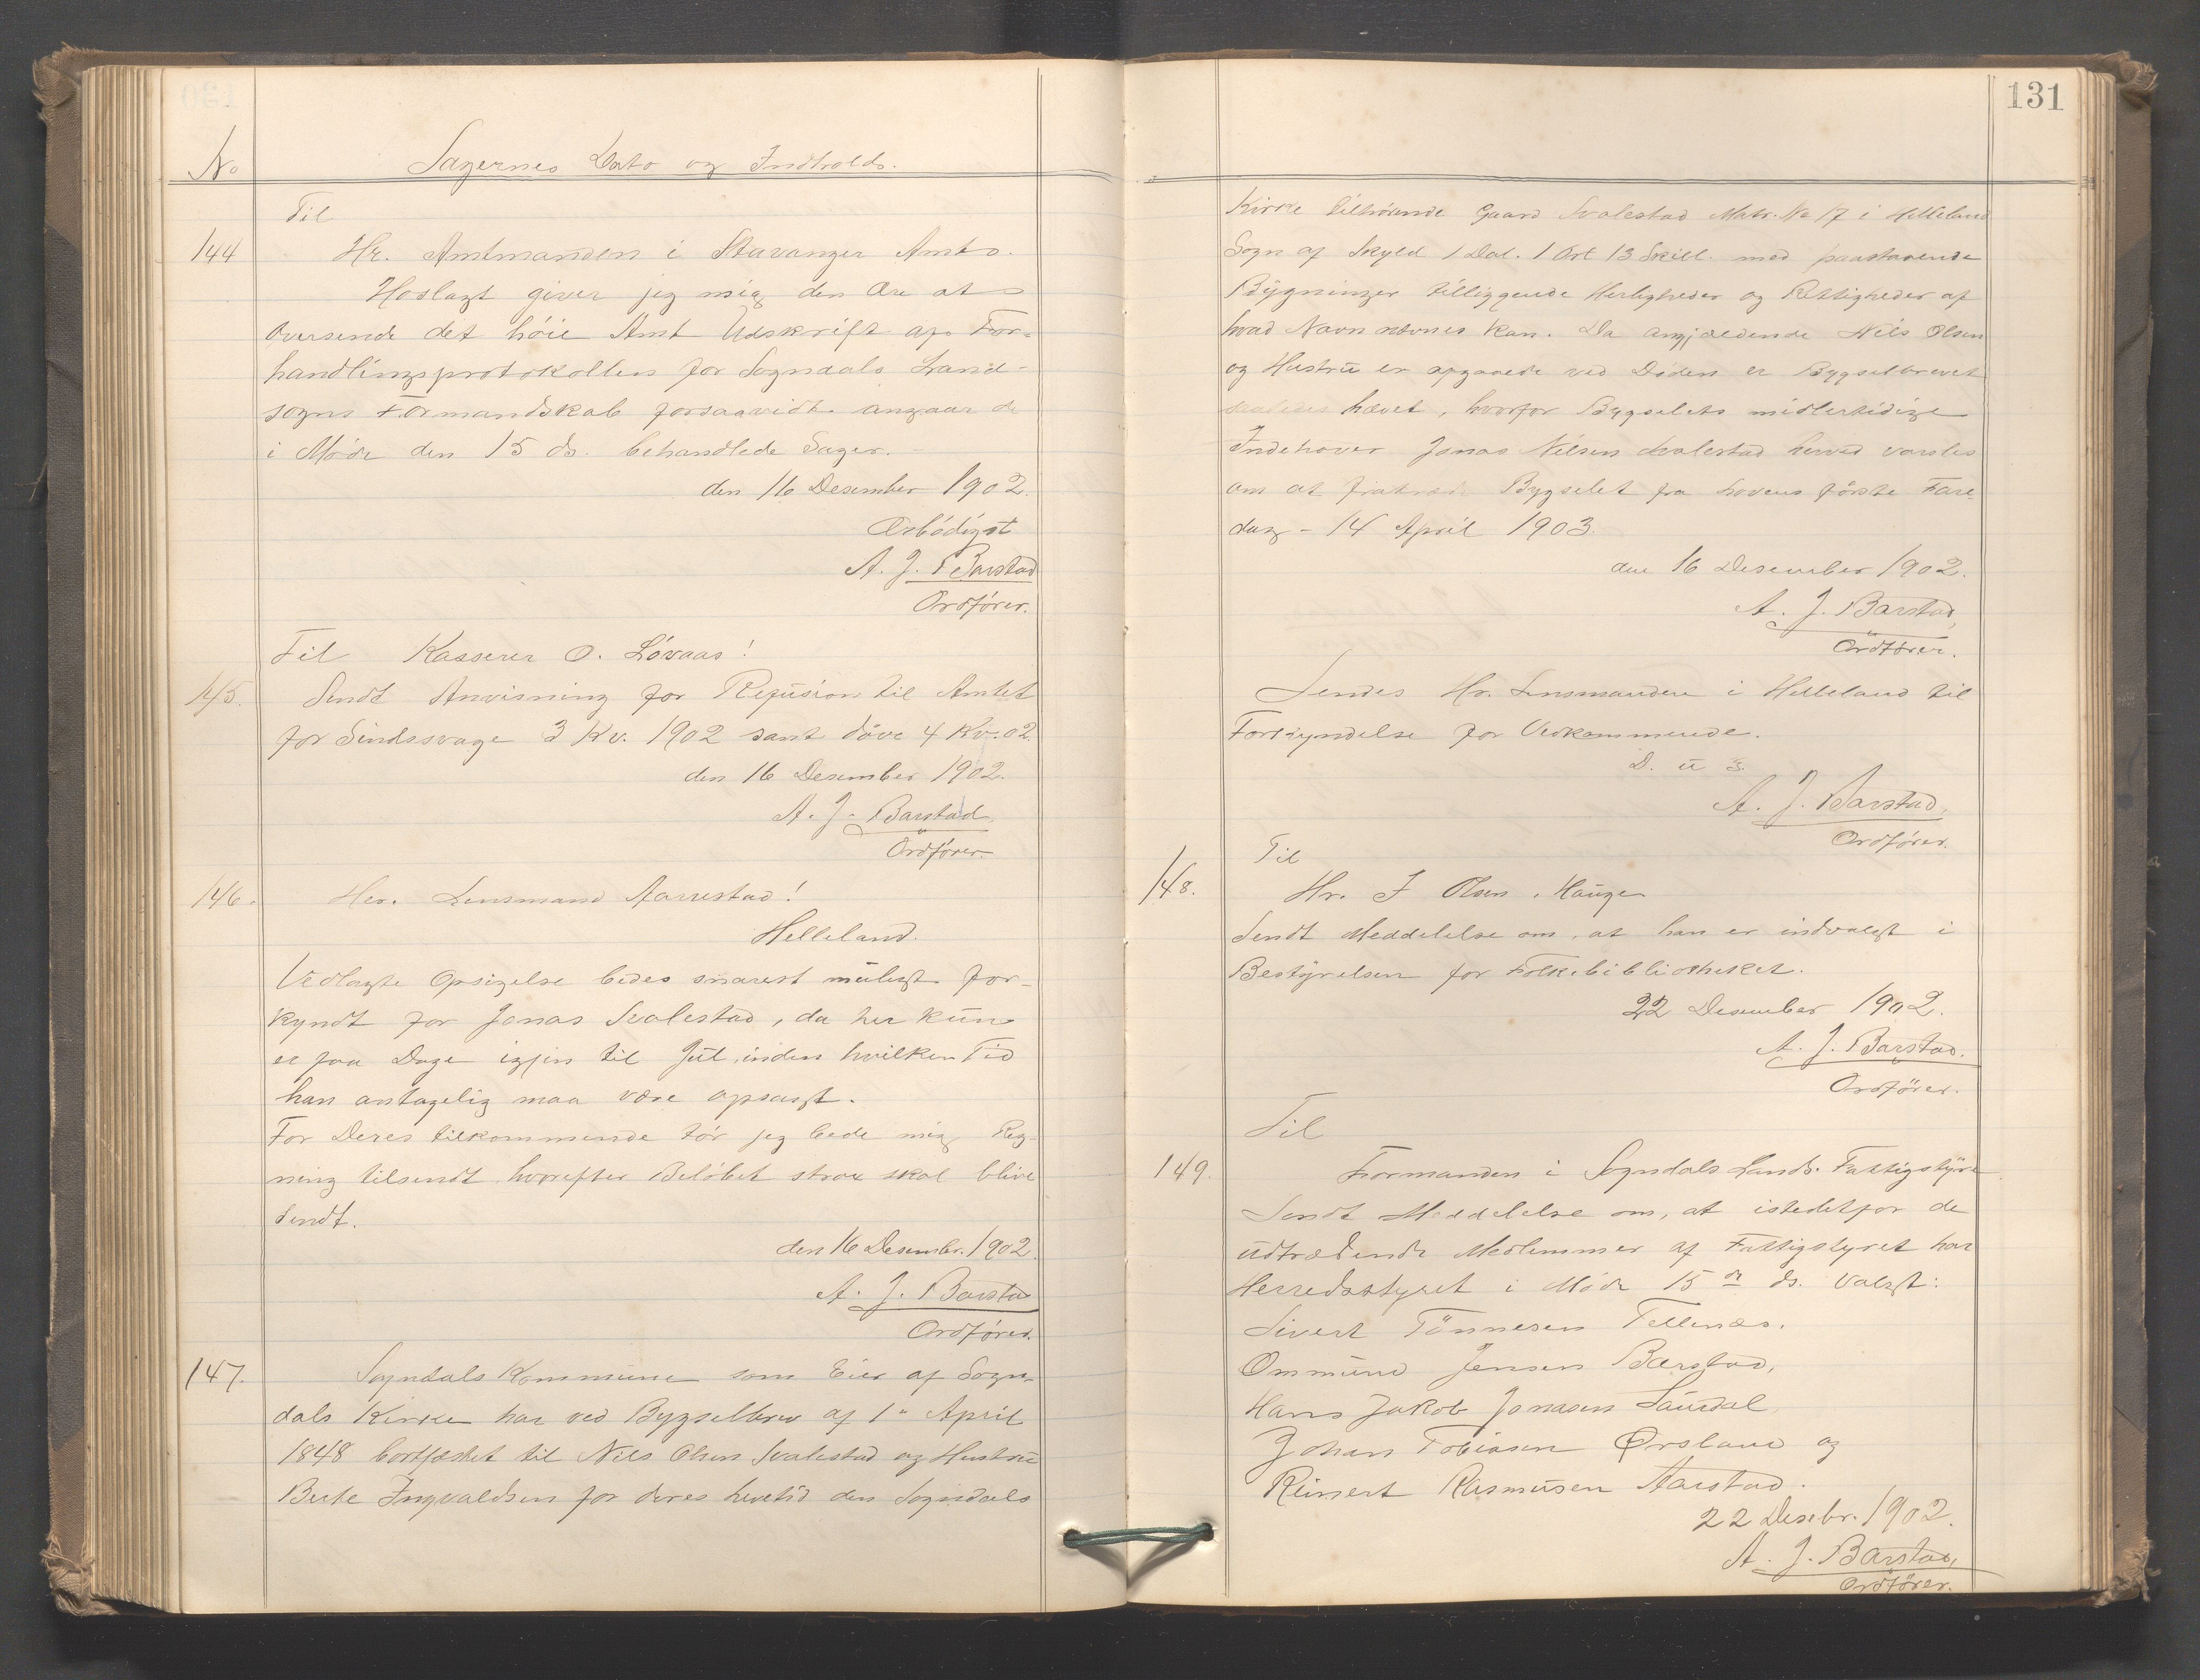 No
Sagernes Dato og Indhold.
Til
144
Hr. Amtmanden i Stavanger Amt.
Hoslagt giver jeg mig den Ære at
oversende det høie Amt Udskrift af For-
handlingsprotokollen for Sogndals Land-
sogns Formandskab forsaavidt angaar de
i Møde den 15 ds. behandlede Sager.
den 16 Desember 1902.
Ærbødigst
A. J. Barstad
Ordfører.
Til Kasserer O. Løvaas!
145.
Sendt Anvisning for Refusion til Amtet
for Sindssvage 3 Kv. 1902 samt døve 4 Kv. 02.
den 16 Desember 1902.
A. J. Barstad
Ordfører.
146.
Her. Lensmand Aarrestad!
Helleland.
Vedlagte Opsigelse bedes snarest muligt for-
kyndt for Jonas Svalestad, da her kun
er faa Dage igjen til Jul, inden hvilken Tid
han antagelig maa være opsagt.
For Deres tilkommende tør jeg bede mig Reg-
ning tilsendt hvorefter Beløbet strax skal blive
sendt.
den 16 Desembr. 1902.
A. J. Barstad
Ordfører.
147.
Sogndals Kommune som Eier af Sogn-
dals Kirke har ved Bygselbrev af 1ste April
1848 bortfæstet til Nils Olsen Svalestad og Hustru
Berte Ingvaldsen for deres Levetid den Sogndals
131
Kirke tilhørende Gaard Svalestad Matr. No 17 i Helleland
Sogn af Skyld 1 Dal. 1 Ort 13 Skill. med paastaaende
Bygninger tilliggende Herligheder og Rettigheder af
hvad Navn nævnes kan. Da angjældende Nils Olsen
og Hustru er afgaaede ved Døden er Bygselbrevet
saaledes hævet, hvorfor Bygselets midlertidige
Indehaver Jonas Nilsen Svalestad herved varsles
om at fratræde Bygselet fra Lovens første Fare-
dag - 14 April 1903.
den 16 Desember 1902.
A. J. Barstad,
Ordfører.
Sendes Hr. Lensmanden i Helleland til
Forkyndelse for Vedkommende.
D. u. s.
A. J. Barstad,
Ordfører.
Til
148.
Hr. J Olsen, Hauge
Sendt Meddelelse om, at han er indvalgt i
Bestyrelsen for Folkebibliotheket.
22 Desember 1902.
A. J. Barstad.
Ordfører.
Til
149.
Formanden i Sogndals Lands. Fattigstyre
Sendt Meddelelse om, at istedetfor de
udtrædende Medlemmer af Fattigstyret har
Herredsstyret i Møde 15de ds. valgt:
Sivert Tønnesen Tellenæs.
Ommund Jensen Barstad,
Hans Jakob Jonasen Laurdal
Johan Tobiasen Ørsland og
Reinert Rasmusen Aarstad.
22 Desebr. 1902.
A. J. Barstad,
Ordfører.